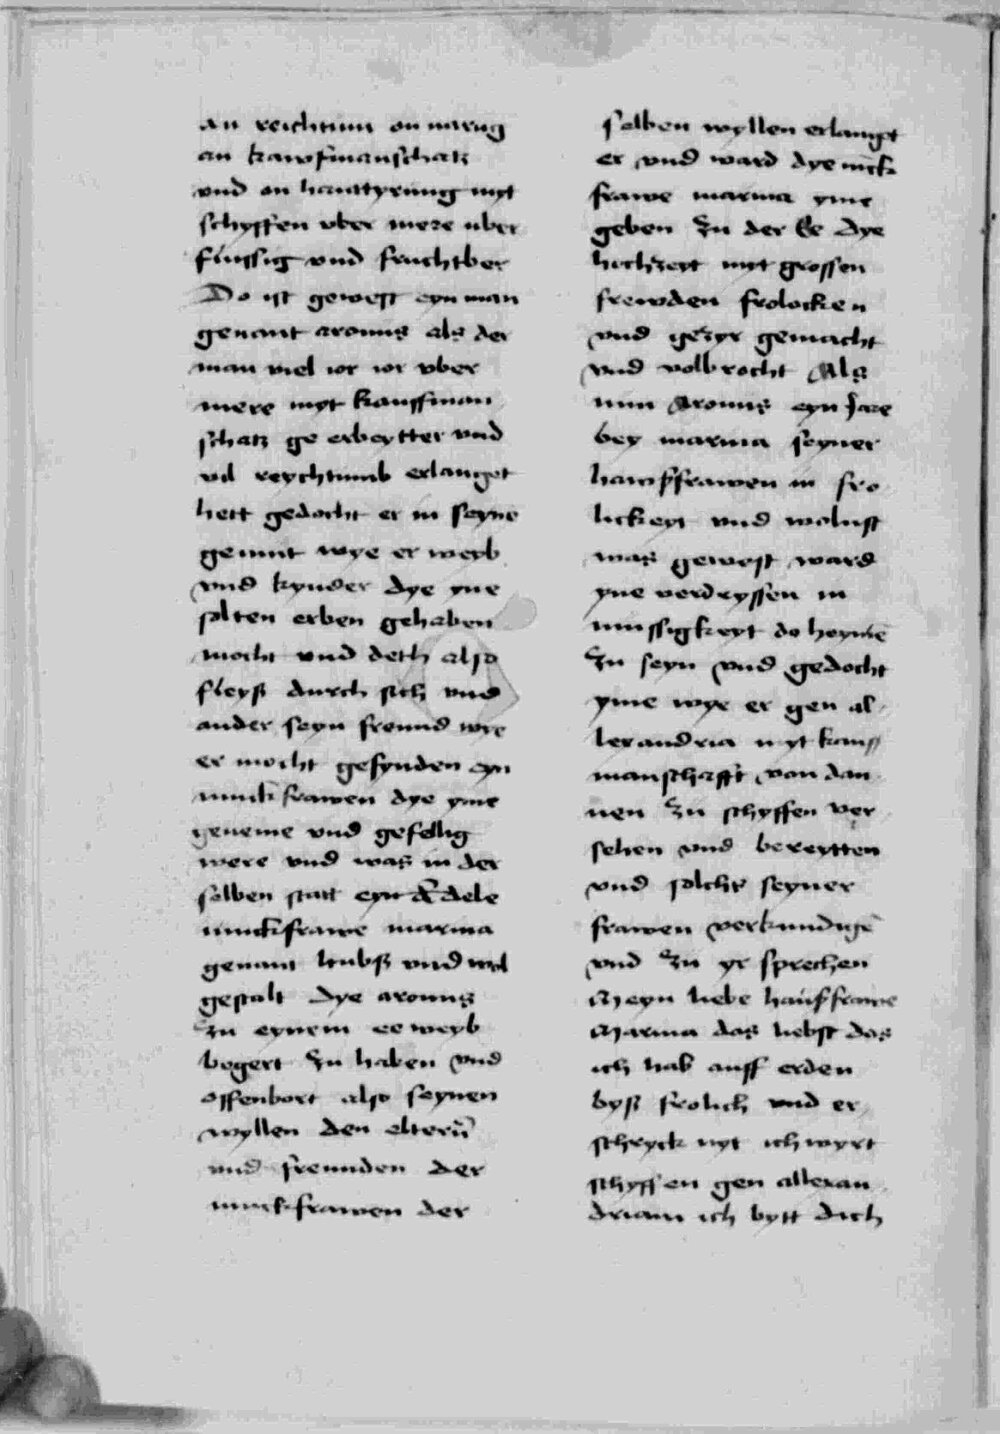 an reichtum on narug
an kawfmanschatz
vnd an hanttyrung myt
schyffen vber mere uber
flussig vnd fruchtber
Do ist gewest eyn man
genant aronus als der
man viel ior ior vber
mere myt kauffman
schatz ge erbeytter vnd
vil reychtumb erlanget
hett gedocht er in seyne
gemut wye er weyb
vnd kynder dye yne
solten erben gehaben
mocht vnd deth also
fleyß durch sich vnd
ander seyn freund wye
er mocht gefynden eyn
iunckfrawen dye yme
geneme vnd gefellig
were vnd was in der
selben statt eyn edele
iunckfrawe marina
genant leubß vnd wol
gestalt dye aronus
zu eynem ee weyb
begert zu haben vnd
offenbort also seynen
wyllen den elterñ
vnd freunden der
iunckfrawen der
selben wyllen erlanget
er vnd ward dye iūck
frawe marina yme
geben zu der Ee dye
hochzeyt myt grossen
frewden frolocken
vnd gezyr gemacht
vnd volbrocht Als
nun Aronus eyn Jare
bey marina seyner
hawßfrawen in fro
lickeyt vnd wolust
was gewest ward
yne verdryssen in
mussigkeyt do heymē
zu seyn vnd gedocht
yme wye er gen al
lexandria myt kauff
manschafft von dan
nen zu schyffen ver
sehen vnd bereytten
vnd solchs seyner
frawen verkundigē
vnd zu yr sprechen
Meyn liebe haußfrawe
Marina das liebst das
ich hab auff erden
byß frolich vnd er
schryck nyt ich wyrt
schyffen gen allexan
driam ich bytt dich